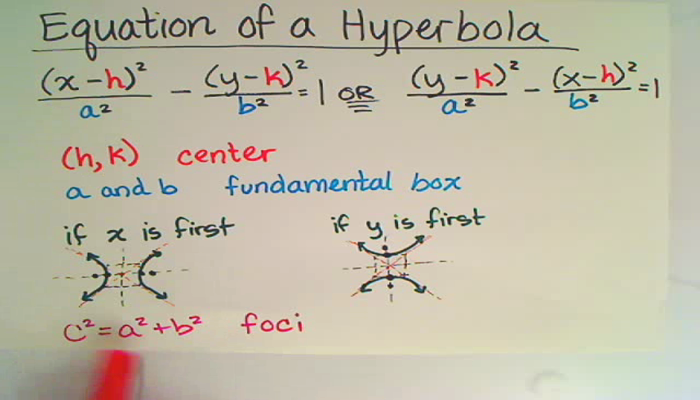 Equation of a Hyperbola
(x-h)²/a² - (y-k)²/b² = 1 OR (y-k)²/a² - (x-h)²/b² = 1
(h, k) center
a and b fundamental box
if x is first if y is first
c² = a² + b² foci